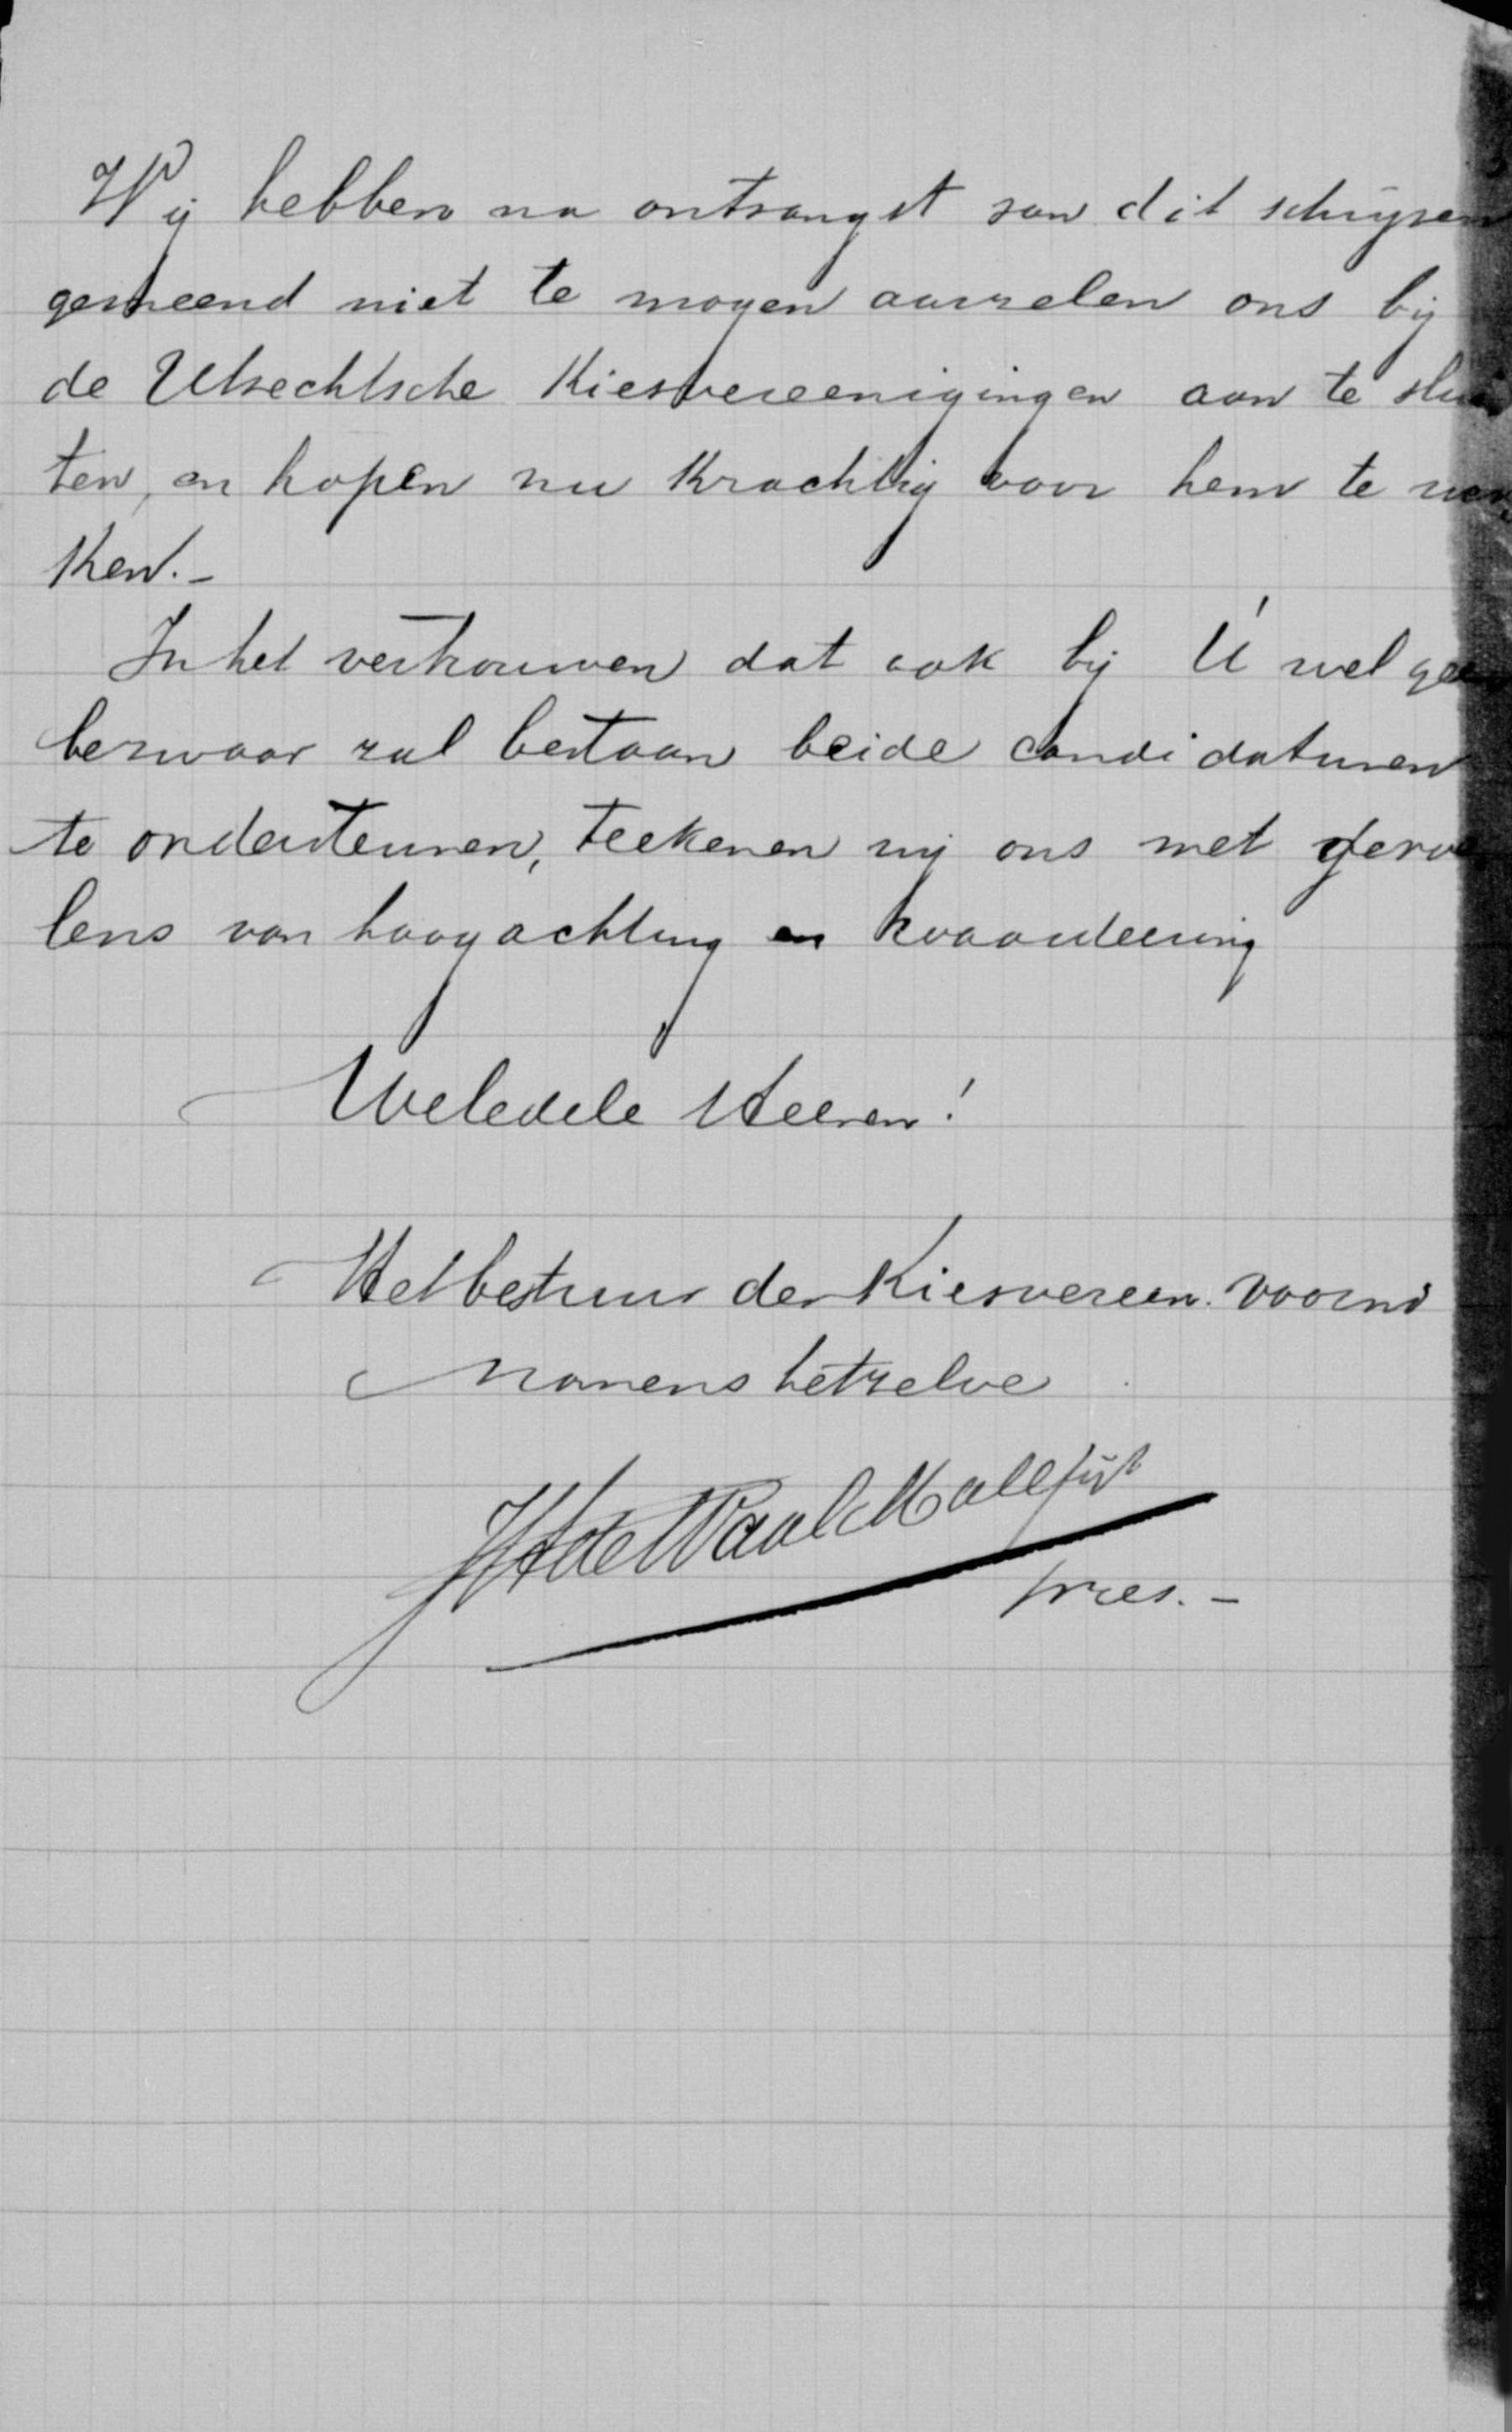 Wij hebben na ontvangst van dit schrijven
gemeend niet te mogen aarzelen ons bij
de Utrechtsche Kiesvereenigingen aan te slui
ten, en hopen nu Krachtig voor hem te wer,
Ken.-
In het vertrouwen dat ook bij Ú wel geen
bezwaar zal bestaan beide candidaturen
te ondersteunen, teekenen wij ons met gevoe
lens van hoogachting en waardeering
Weledele Heeren!
Het bestuur der Kiesvereen. voorns
Namens hetzelve
de Waal Malefijt
pres. -